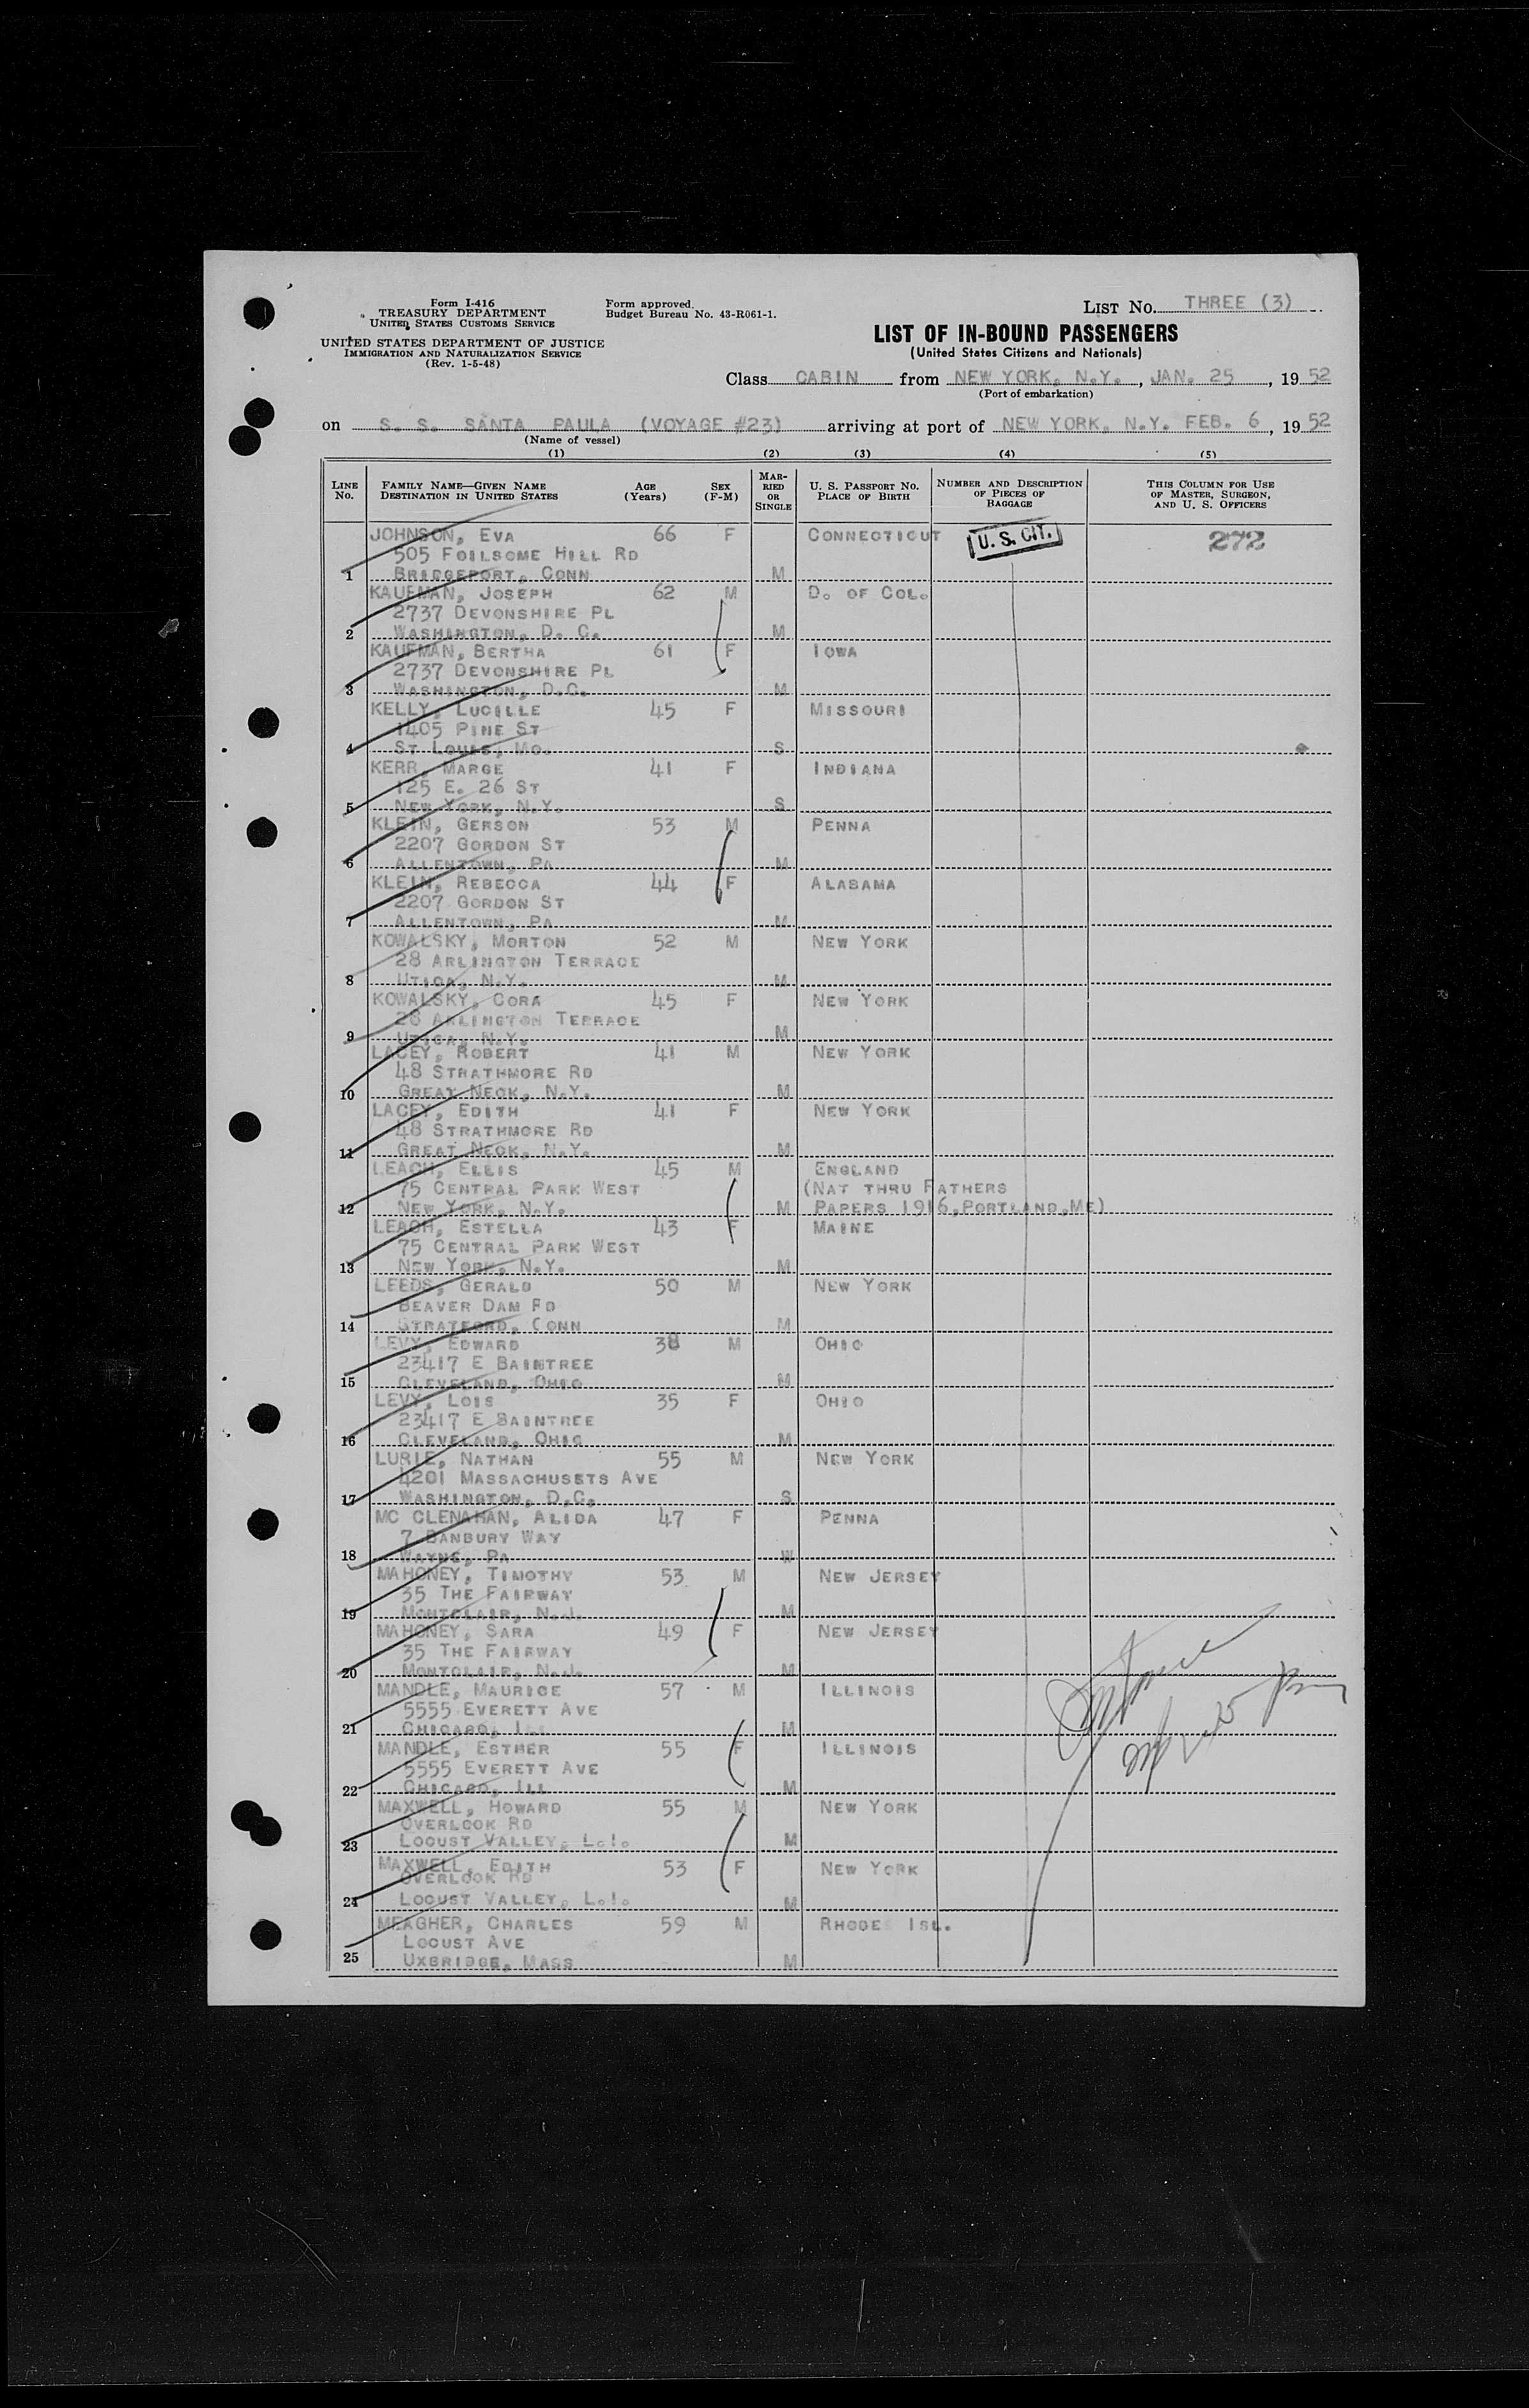 Form I-416
TREASURY DEPARTMENT
UNITED STATES CUSTOMS SERVICE
UNITED STATES DEPARTMENT OF JUSTICE
IMMIGRATION AND NATURALIZATION SERVICE
(Rev. 1-5-48)
Form approved.
Budget Bureau No. 43-R061-1.
LIST NO. THREE (3)
LIST OF IN-BOUND PASSENGERS
(United States Citizens and Nationals)
Class CABIN from NEW YORK, N.Y., JAN. 25, 1952
(Port of embarkation)
on S. S. SANTA PAULA (VOYAGE #23) arriving at port of NEW YORK, N.Y. FEB. 6, 1952
(Name of vessel)
(1) (2) (3) (4) (5)
LINE NO. FAMILY NAME—GIVEN NAME DESTINATION IN UNITED STATES AGE (Years) SEX (F-M) MARRIED OR SINGLE U. S. PASSPORT NO. PLACE OF BIRTH NUMBER AND DESCRIPTION OF PIECES OF BAGGAGE THIS COLUMN FOR USE OF MASTER, SURGEON, AND U. S. OFFICERS
JOHNSON, EVA 66 F CONNECTICUT U. S. CIT. 272
505 FOILSOME HILL RD
1 BRIDGEPORT, CONN M
KAUFMAN, JOSEPH 62 M D. OF COL.
2737 DEVONSHIRE PL
2 WASHINGTON, D. C. M
KAUFMAN, BERTHA 61 F IOWA
2737 DEVONSHIRE PL
3 WASHINGTON, D.C. M
KELLY, LUCILLE 45 F MISSOURI
1405 PINE ST
4 ST LOUIS, MO. S
KERR, MARGE 41 F INDIANA
125 E. 26 ST
5 NEW YORK, N.Y. S
KLEIN, GERSON 53 M PENNA
2207 GORDON ST
6 ALLENTOWN, PA M
KLEIN, REBECCA 44 F ALABAMA
2207 GORDON ST
7 ALLENTOWN, PA M
KOWALSKY, MORTON 52 M NEW YORK
28 ARLINGTON TERRACE
8 UTICA, N.Y. M
KOWALSKY, CORA 45 F NEW YORK
28 ARLINGTON TERRACE
9 UTICA, N.Y. M
LACEY, ROBERT 41 M NEW YORK
48 STRATHMORE RD
10 GREAT NECK, N.Y. M
LACEY, EDITH 41 F NEW YORK
48 STRATHMORE RD
11 GREAT NECK, N.Y. M
LEACH, ELLIS 45 M ENGLAND
75 CENTRAL PARK WEST (NAT THRU FATHERS
12 NEW YORK, N.Y. M PAPERS 1916,PORTLAND,ME)
LEACH, ESTELLA 43 F MAINE
75 CENTRAL PARK WEST
13 NEW YORK, N.Y. M
LEEDS, GERALD 50 M NEW YORK
BEAVER DAM RD
14 STRATFORD, CONN M
LEVY, EDWARD 38 M OHIO
23417 E BAINTREE
15 CLEVELAND, OHIO M
LEVY, LOIS 35 F OHIO
23417 E BAINTREE
16 CLEVELAND, OHIO M
LURIE, NATHAN 55 M NEW YORK
4201 MASSACHUSETS AVE
17 WASHINGTON, D.C. S
MC CLENAHAN, ALIDA 47 F PENNA
7 BANBURY WAY
18 WAYNE, PA W
MAHONEY, TIMOTHY 53 M NEW JERSEY
35 THE FAIRWAY
19 MONTCLAIR, N.J. M
MAHONEY, SARA 49 F NEW JERSEY
35 THE FAIRWAY
20 MONTCLAIR, N.J. M
MANDLE, MAURICE 57 M ILLINOIS
5555 EVERETT AVE
21 CHICAGO, ILL M
MANDLE, ESTHER 55 F ILLINOIS
5555 EVERETT AVE
22 CHICAGO, ILL M
MAXWELL, HOWARD 55 M NEW YORK
OVERLOOK RD
23 LOCUST VALLEY, L.I. M
MAXWELL, EDITH 53 F NEW YORK
OVERLOOK RD
24 LOCUST VALLEY, L.I. M
MEAGHER, CHARLES 59 M RHODE ISL.
LOCUST AVE
25 UXBRIDGE, MASS M